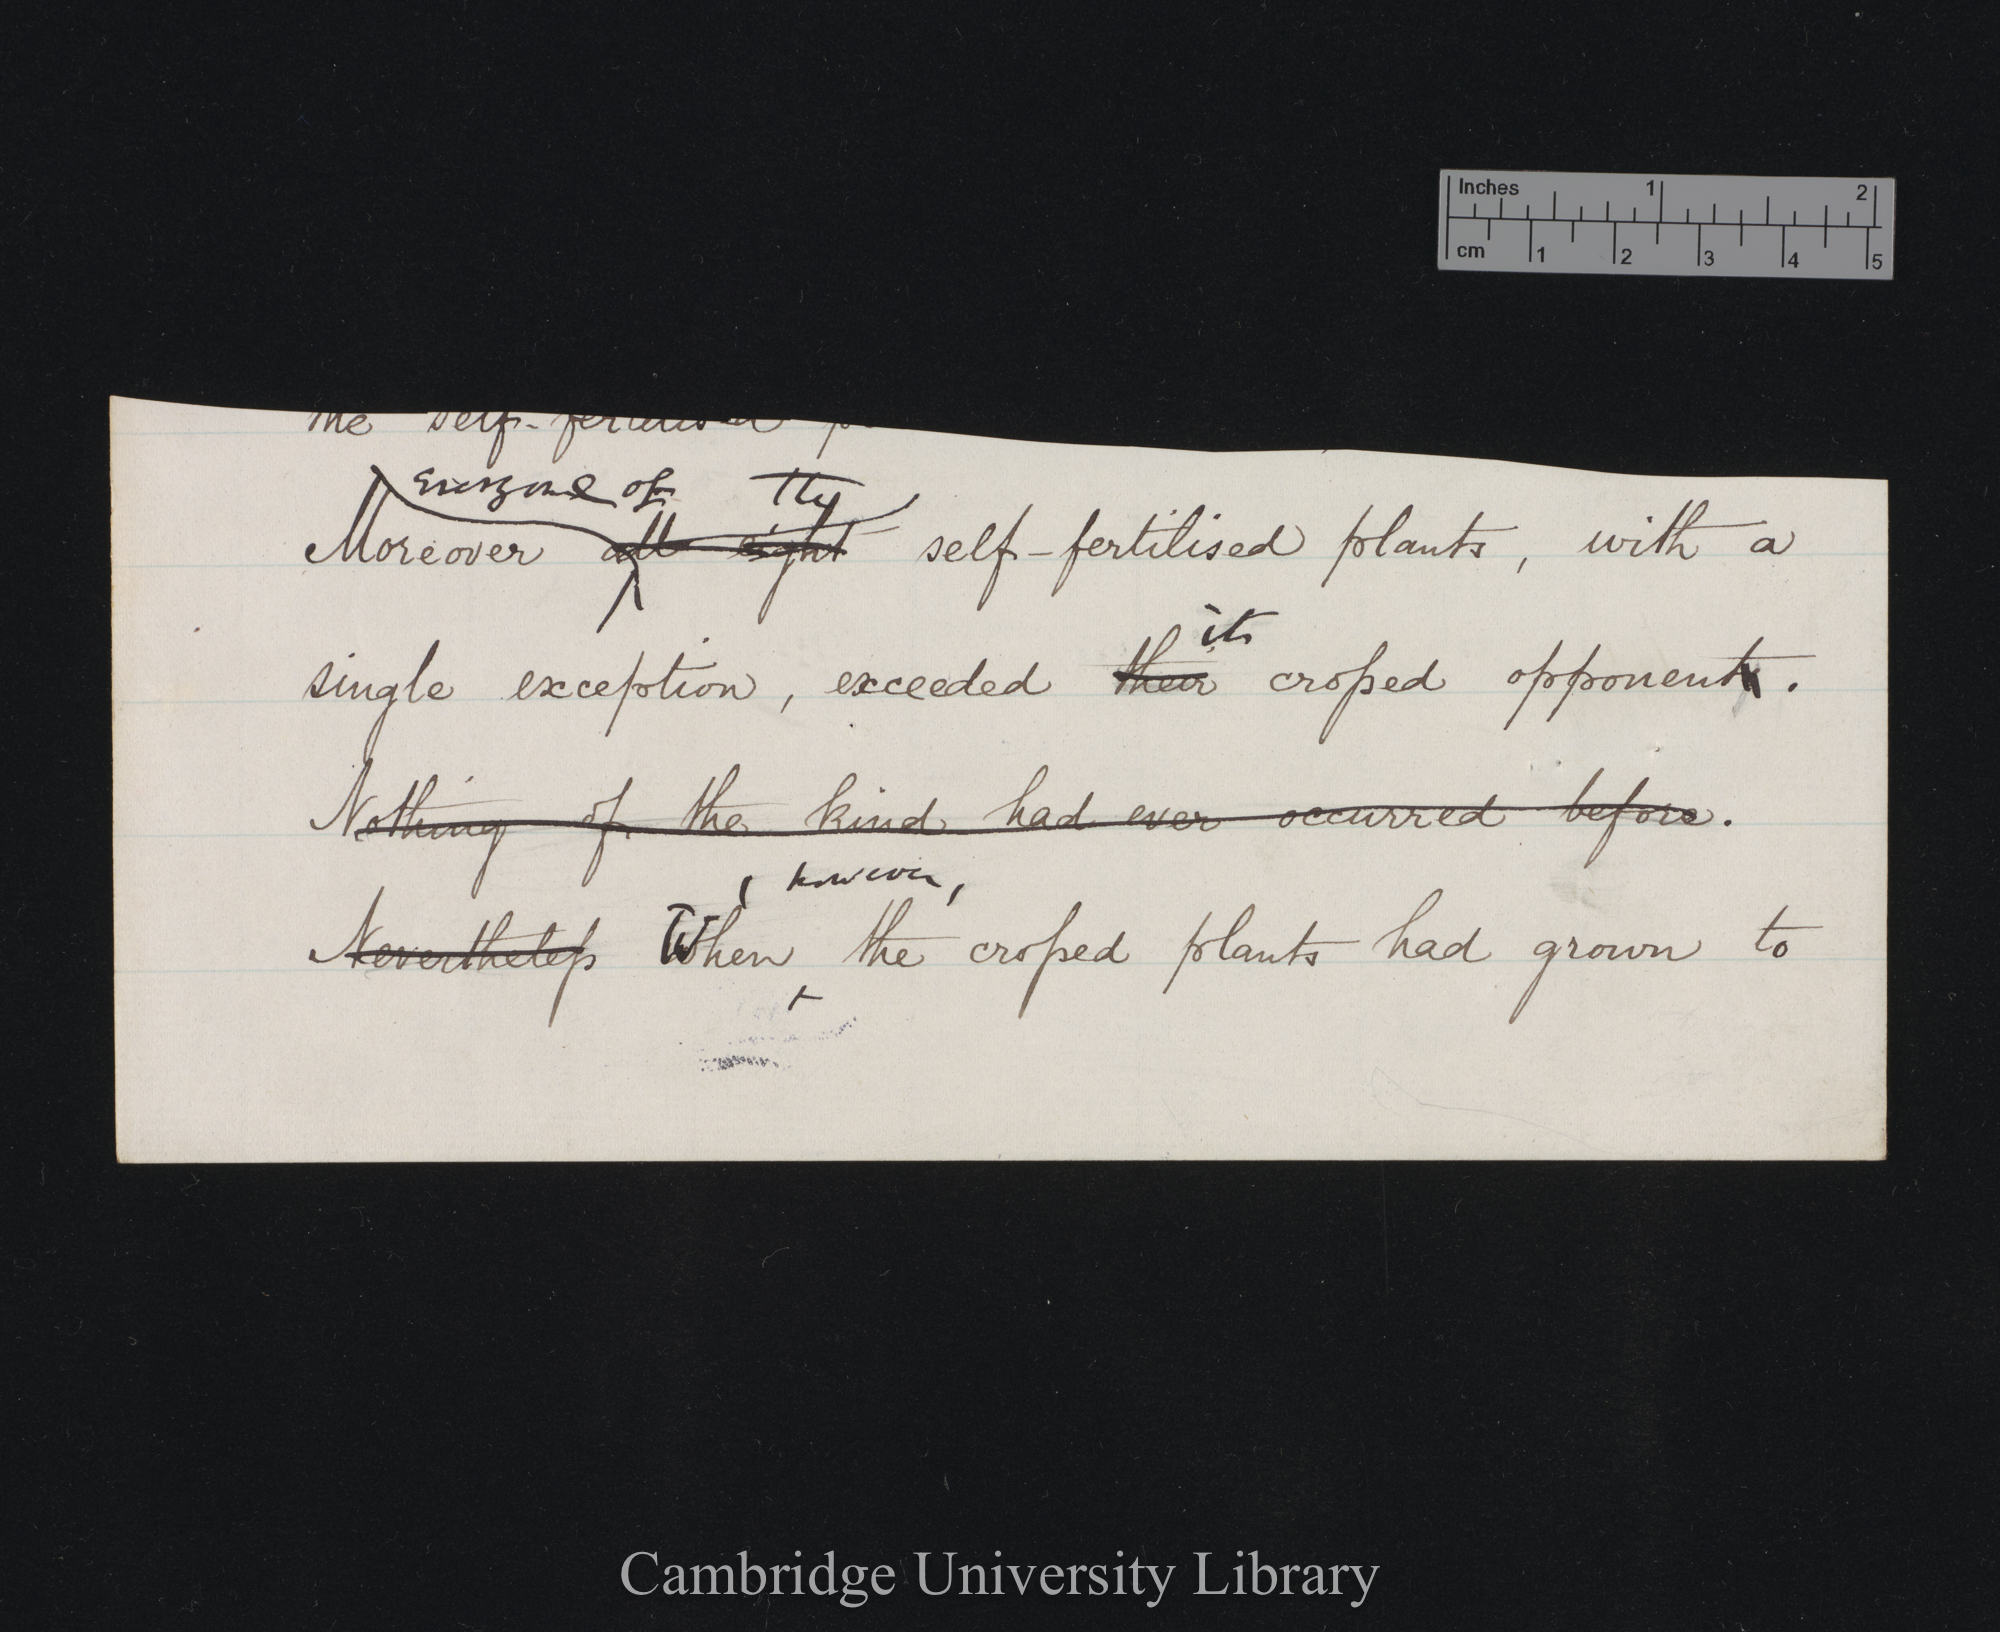 Inches 1 2
cm 1 2 3 4 5
the self-fertilised
everyone of the
Moreover all eight self-fertilised plants, with a
its
single exception, exceeded their crossed opponents.
Nothing of the kind had ever occurred before.
, however,
Nevertheless When the crossed plants had grown to
Cambridge University Library